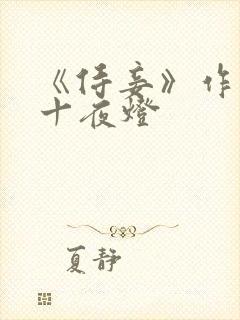 《侍妾》作
十夜燈
夏静